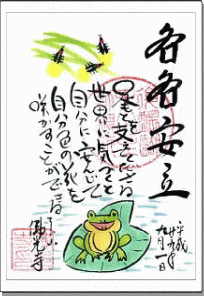 各各安立
足を支えている
世界に気づき
自分に安んじて
自分色の花を
咲かすことができる
平成
廿五年
九月一日
佛光寺